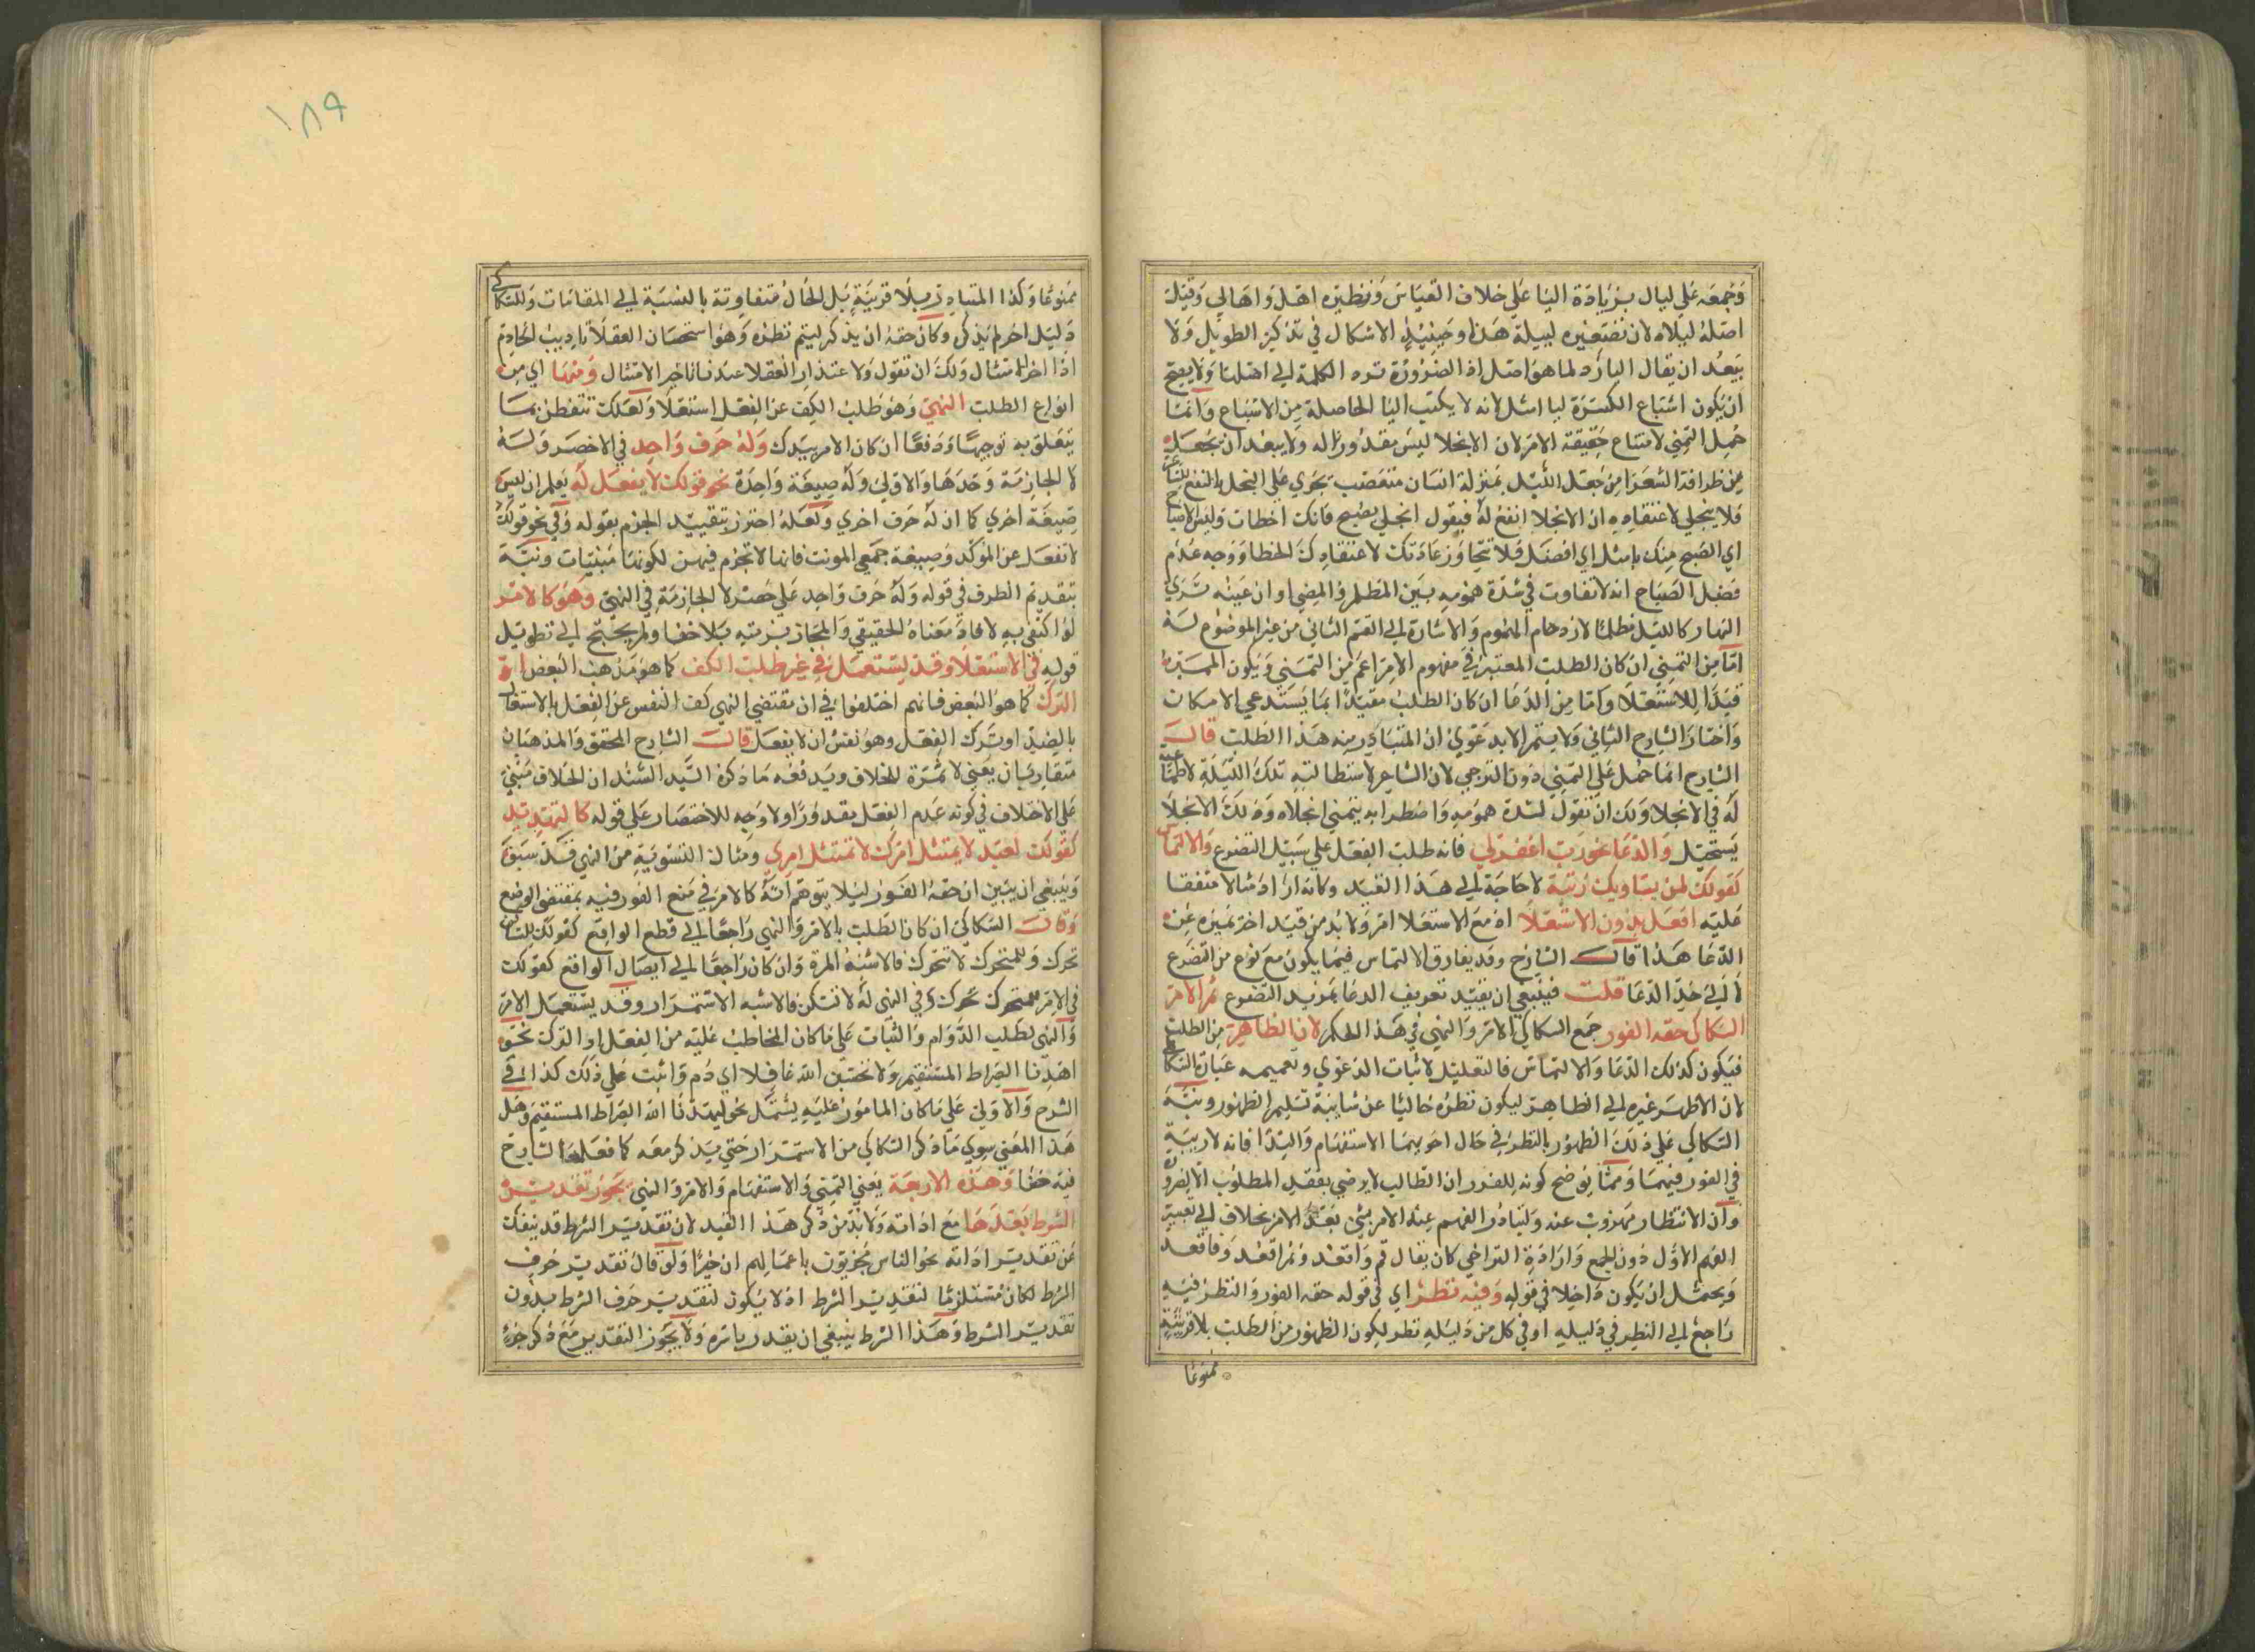 وجمعه على ليال بزيادة اليا على خلاف القياس ونظيره اهل واهالي وقيل
اصله ليلاه لان تصغيره لييلة هذا وحينئذ الاشكال في تذكير الطويل ولا
يبعد ان يقال الياء رد لما هو اصل اذ الضرورة ترد الكلمة الى اصلها ولا يصح
ان يكون اشباع الكسرة ليا امثل لانه لا يكتب اليا الحاصلة من الاشباع وانما
حمل التمني لامتناع حقيقة الامر لان الانجلا ليس مقدورا له ولا يبعد ان يجعل
من ظرافة الشعرا من جعل الليل بمنزلة انسان متعصب يجري على البخل بالنفع للشاعر
فلا ينجلي لاعتقاده ان الانجلا انفع له فيقول انجلي بصبح فانك اخطات وليس الاصباح
اي الصبح منك بامثل اي افضل فلا تتجاوز عادتك لاعتقادك الخطا ووجه عدم
فضل الصباح انه لا تفاوت في شدة همومه بين المظلم والمضي او ان عينه ترى
النهار كالليل مظلما لازدحام الهموم والاشارة الى القسم الثاني من غير الموضوع له
اما من التمني ان كان الطلب المعتبر في مفهوم الامر اعم من التمني ويكون المميز
قيد الاستعلا واما من الدعا ان كان الطلب مقيدا بما يستدعي الامكان
واختار الشارح الثاني ولا يتم الا بدعوى ان المتبادر منه هذا الطلب قال
الشارح انما حمل على التمني دون الترجي لان الشاعر لاستطالته تلك الليلة لا طماعية
له في الانجلا ولك ان تقول لشدة همومه واضطرابه يتمني انجلاه وذلك الانجلا
يستحيل والدعا نحو رب اغفر لي فانه طلب الفعل على سبيل التضرع والالتماس
كقولك لمن يساويك رتبة لا حاجة الى هذا القيد وكانه اراد مثالا متفقا
عليه افعل بدون الاستعلا اذ مع الاستعلا امر ولا بد من قيد اخر يميزه عن
الدعا هذا قال الشارح وقد يفارق الالتماس فيما يكون مع نوع من التضرع
لا الى حد الدعا قلت فينبغي ان يقيد تعريف الدعا بمزيد التضرع ثم الامر
السكاكي حقه الفور جمع السكاكي الامر والنهي في هذا الحكم لانه الظاهر من الطلب
فيكون كذلك الدعا والالتماس فالتعليل لاثبات الدعوي وتعميمه عبارة السكاكي
لان الاظهر غيره الى الظاهر ليكون نظره خاليا عن شايبة تسليم الظهور ونبه
السكاكي على ذلك الظهور بالنظر في حال اخويهما الاستفهام والندا فانه لا ريبة
في الفور فيهما ومما يوضح كونه للفور ان الطالب لا يرضي بفقد المطلوب الا لضرورة
وان الانتظار مهروب عنه ولتبادر الفهم عند الامر بشي بعد الامر بخلافه الى تغيير
الفهم الاول دون الجمع وارادة التراخي كان يقال قم واقعد وثم اقعد وفاقعد
ويحتمل ان يكون داخلا في قوله وفيه نظر اي في قوله حقه الفور والنظر فيه
راجع الى النظر في دليله او في كل من دليليه نظر لكون الظهور من الطلب بلا قرينة
ممنوعا
١٨٩
ممنوعا وكذا المتبادر بلا قرينة بل الحال متفاوتة بالنسبة الى المقامات وللسكاكي
دليل اخر لم يذكره وكان حقه ان يذكر ليتم نظره وهو استحسان العقلا تاديب الخادم
اذا اخر الامتثال ولك ان تقول ولا عتذار العقلا عند تاخير الامتثال ومنها اي من
انواع الطلب النهي وهو طلب الكف عن الفعل استعلا ولعلك تتفطن بما
يتعلق به توجيها ودفعا ان كان الامر بيدك وله حرف واحد في الاخصر وله
لا الجازمة وحدها والاولى وله صيغة واحدة نحو قولك لا يفعل له يعلم ان ليس
صيغة اخري كما ان له حرف اخري ولعله احترز بتقييد الجزم بقوله وفي نحو قولك
لا تفعل عن المؤكد وصيغة جمعي المونث فانها لا تجزم فيهن لكونها مبنيات ونبه
بتقديم الظرف في قوله وله حرف واحد على حصر لا الجازمة في النهي وهو كالامر
لو اكتفى به لافاد معناه الحقيقي والمجاز برمته بلا خفا ولم يحتج الى تطويل
قوله في الاستعلا وقد يستعمل في غير طلب الكف كما هو مذهب البعض او
الترك كما هو البعض فانهم اختلفوا في ان مقتضي النهي كف النفس عن الفعل بالاشتغال
بالضد او ترك الفعل وهو نفس ان لا يفعل قال الشارح المحقق والمذهبان
متقاربان يعني لا ثمرة للخلاف ويدفعه ما ذكره السيد السند ان الخلاف مبني
على الاختلاف في كونه عدم الفعل مقدورا ولا وجه للاختصار على قوله كالتهديد
كقولك لعبد لا يمتثل امرك لا تمتثل امري ومثال التسوية من النهي قد سبق
وينبغي ان يبين ان حقه الفور ليلا يتوهم انه كالامر في منع الفور فيه بمقتضى الوضع
وقال السكاكي ان كان الطلب بالامر والنهي راجعا الى قطع الواقع كقولك للساكن
تحرك وللمتحرك لا تتحرك فالاشبه المرة وان كان راجعا الى ايصال الواقع كقولك
في الامر للمتحرك تحرك وفي النهي له لا تسكن فالاشبه الاستمرار وقد يستعمل الامر
والنهي لطلب الدوام والثبات على ما كان المخاطب عليه من الفعل او الترك نحو
اهدنا الصراط المستقيم ولا تحسبن الله غافلا اي دم واثبت على ذلك كذا في
الشرح والاولى على ما كان المامور عليه يشمل نحو ليهدنا الله الصراط المستقيم وهل
هذا المعني سوي ما ذكر السكاكي من الاستمرار حتي يذكر معه كما فعله الشارح
فيه خفا وهذه الاربعة يعني التمني والاستفهام والامر والنهي يجوز تقدير
الشرط بعدها مع اداته ولا بد من ذكر هذا القيد لان تقدير الشرط قد ينفك
عن تقدير اداته نحو الناس مجزيون باعمالهم ان خيرا ولو قال تقدير حرف
الشرط لكان مستلزما لتقدير الشرط اذ لا يكون لتقدير حرف الشرط بدون
تقدير الشرط وهذا الشرط ينبغي ان يقدر باسره ولا يجوز التقدير مع ذكر جزء